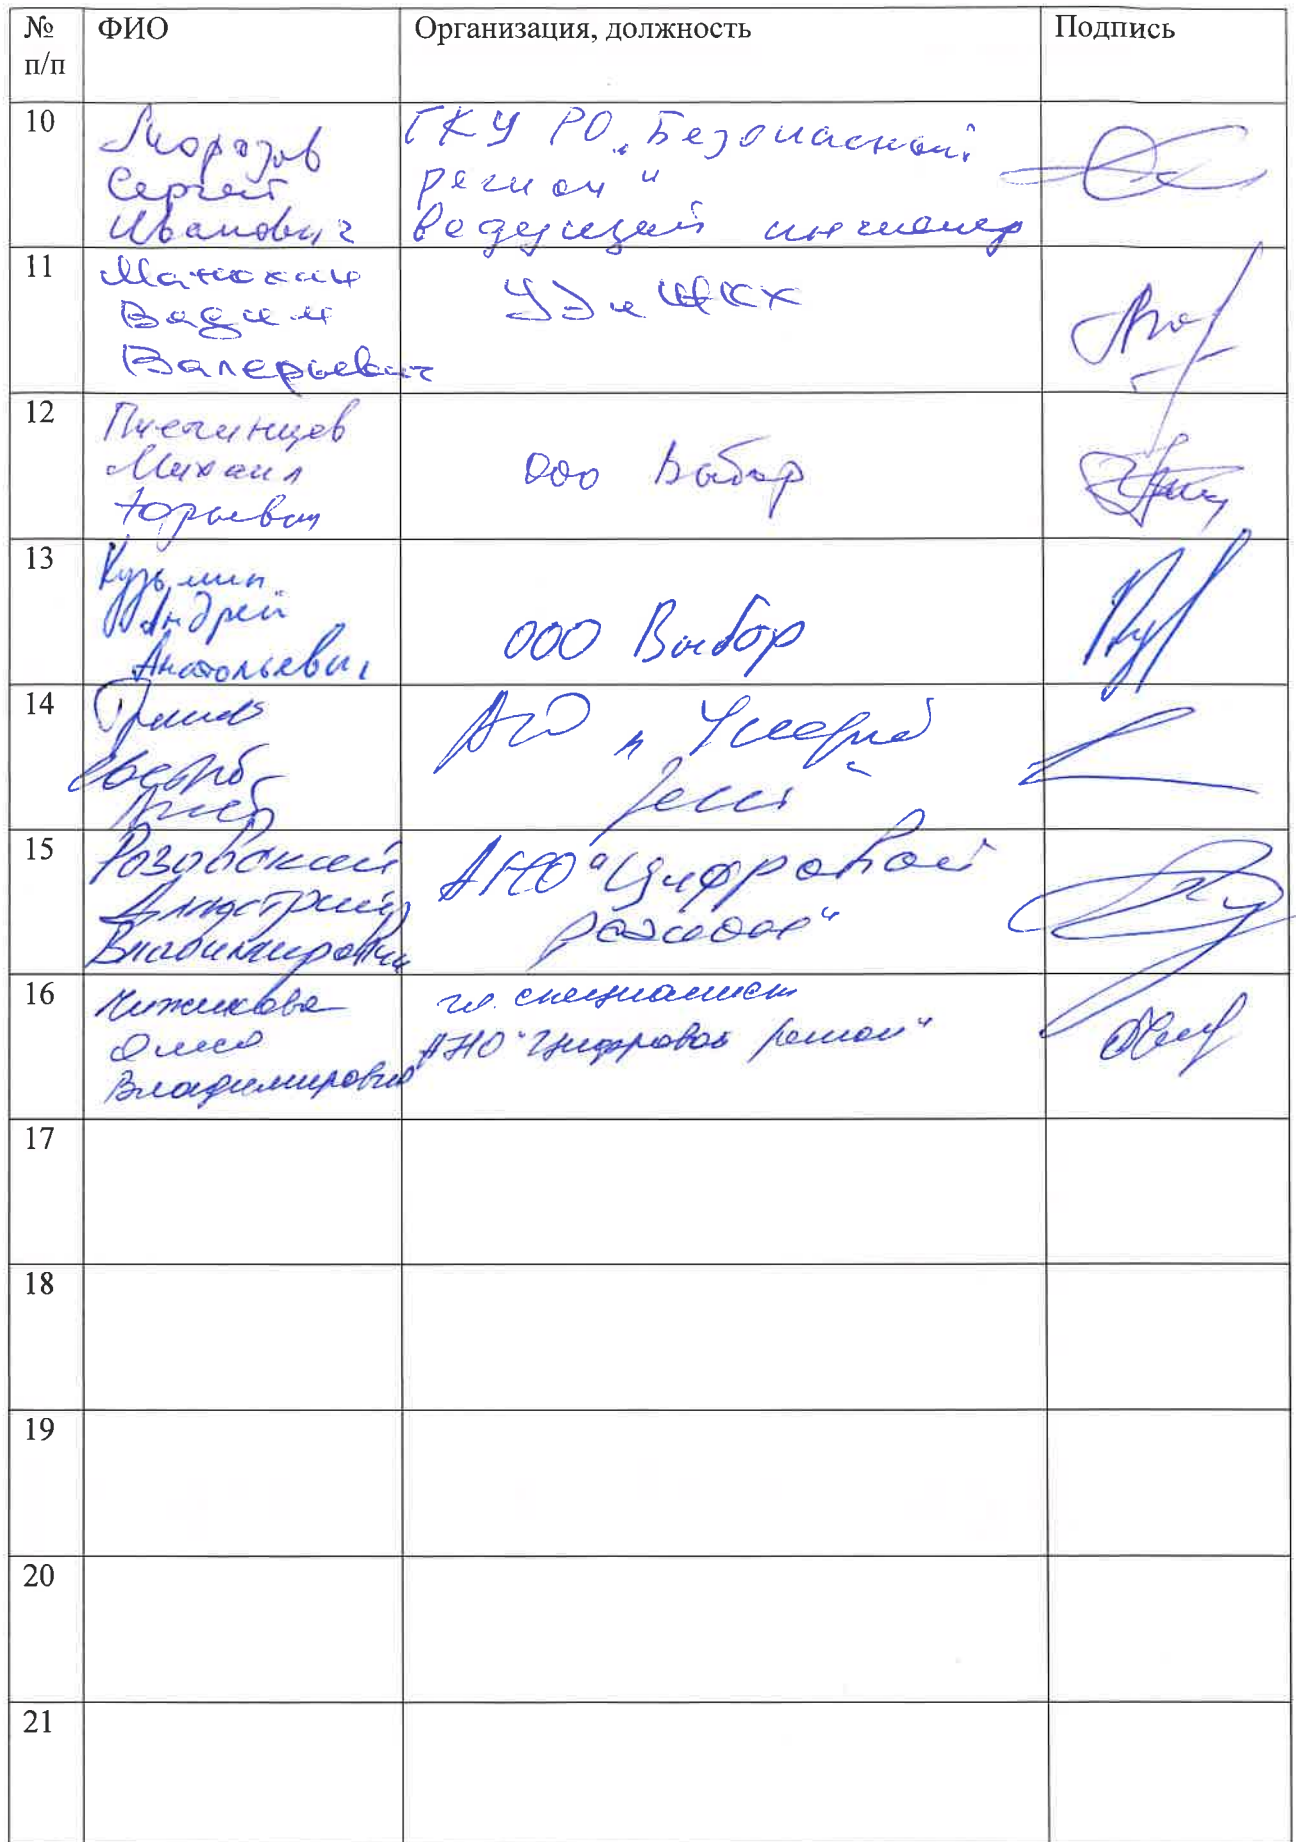 № п/п ФИО Организация, должность Подпись
10
Морозов
Сергей
Иванович
ГКУ РО „Безопасный
регион"
ведущий инженер
11
Манохин
Вадим
Валерьевич
УЭи ЖКХ
12
Михаил
Юрьевич
ООО Выбор
13
Кузьмин
Андрей
Анатольевич
ООО Выбор
14
15
Розовский
Дмитрий
Владимирович
АНО "Цифровой
регион"
16
Чижикова
Ольга
Владимировна
гл. специалист
АНО "Цифровой регион"
17
18
19
20
21